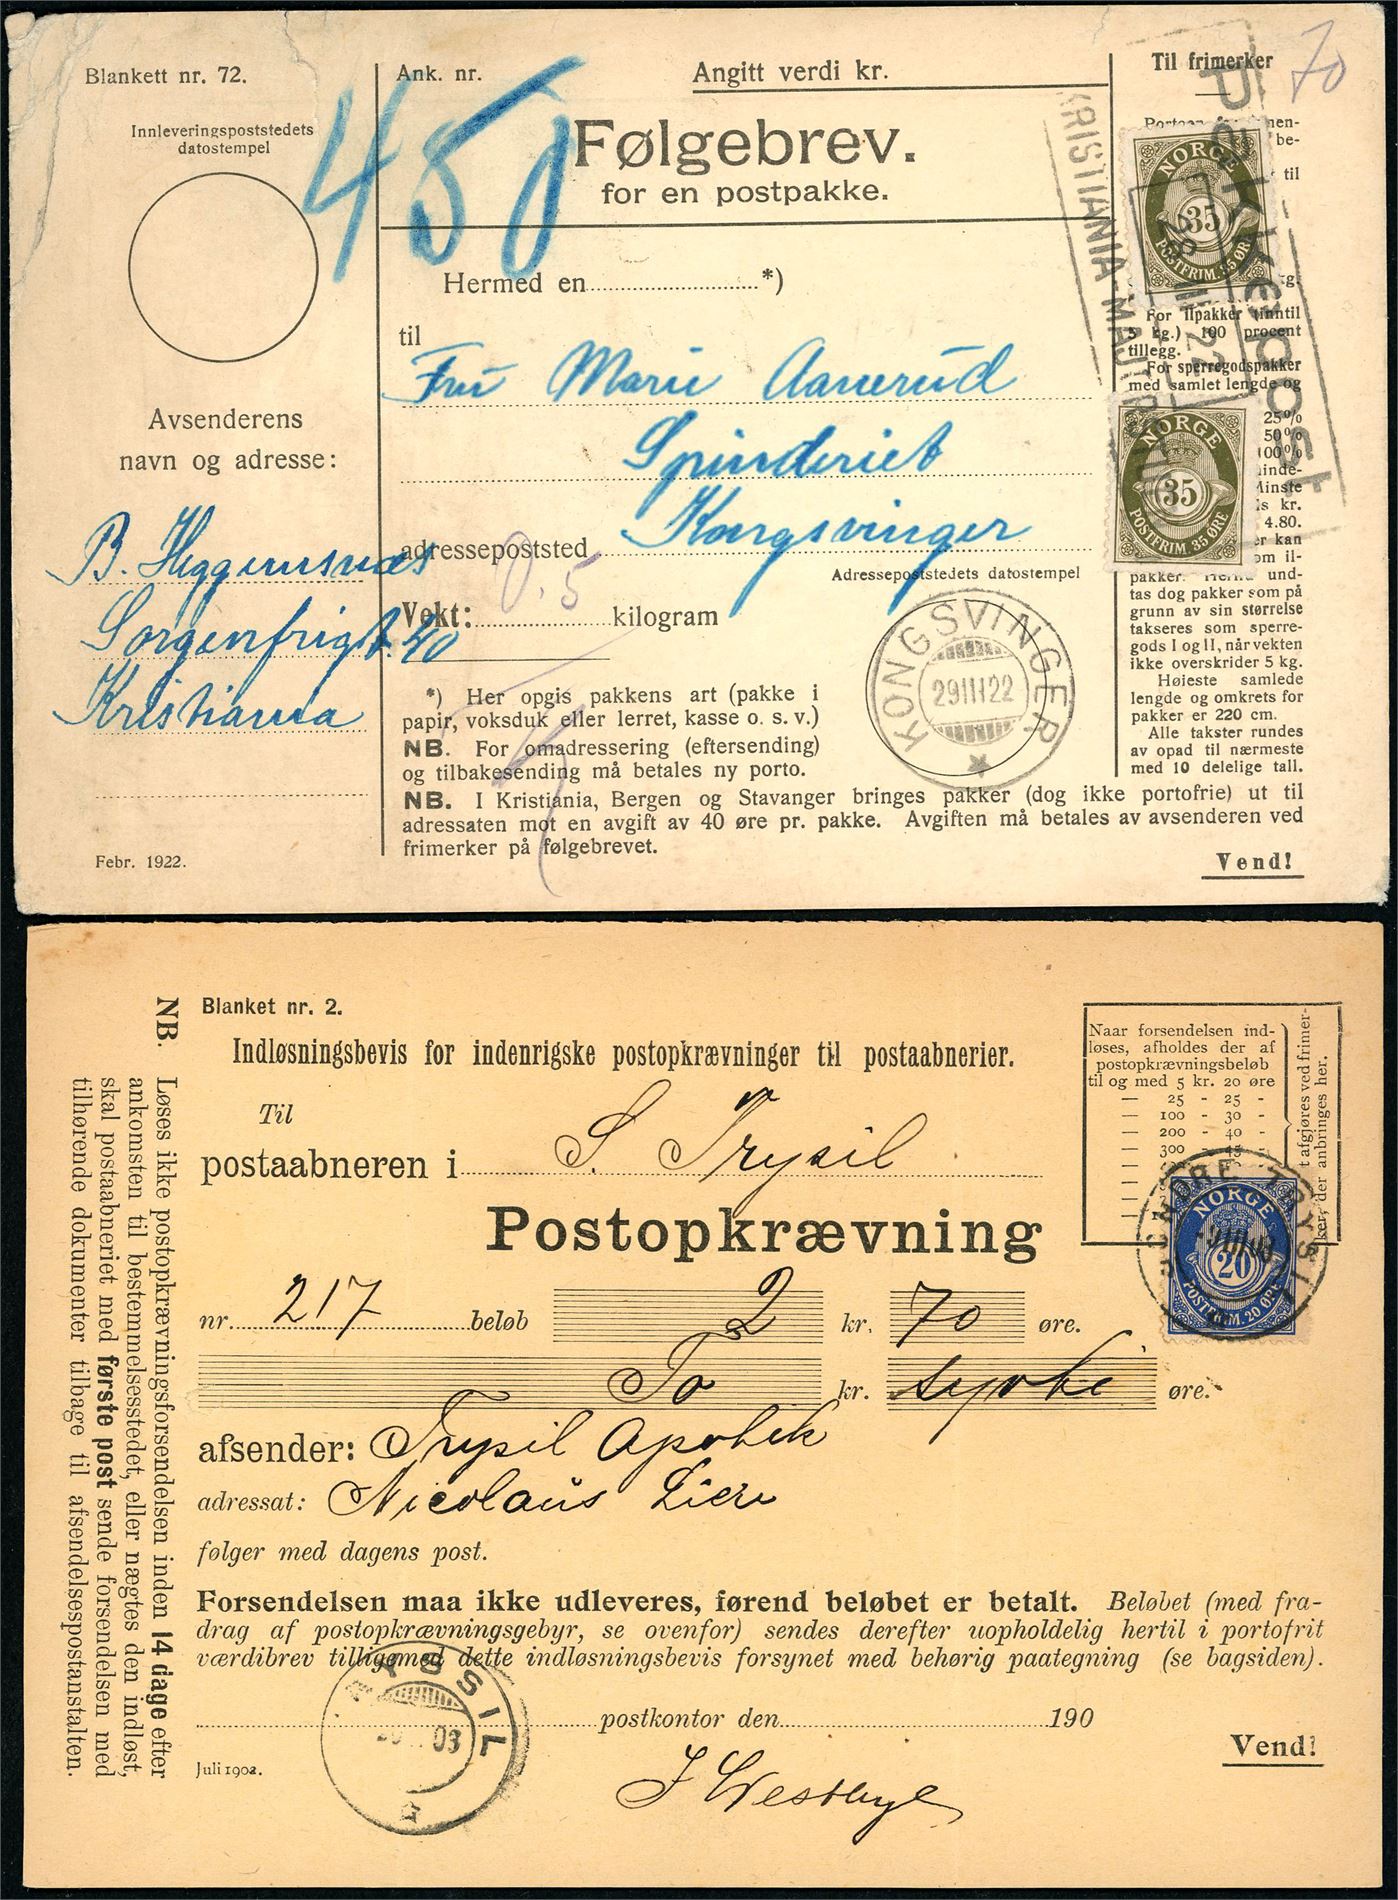 Blankett nr. 72.
Innleveringspoststedets
datostempel
Avsenderens
navn og adresse:
Sorgenfrigt. 40
Kristiania
Febr. 1922.
Ank. nr.
Angitt verdi kr.
450
Følgebrev.
for en postpakke.
Hermed en *)
til
Fru Marie Aanerud
Spinderiet
adressepoststed Kongsvinger
Adressepoststedets datostempel
Vekt: 0.5 kilogram
KONGSVINGER
29 III 22
*) Her opgis pakkens art (pakke i
papir, voksduk eller lerret, kasse o. s. v.)
NB. For omadressering (eftersending)
og tilbakesending må betales ny porto.
NB. I Kristiania, Bergen og Stavanger bringes pakker (dog ikke portofrie) ut til
adressaten mot en avgift av 40 øre pr. pakke. Avgiften må betales av avsenderen ved
frimerker på følgebrevet.
Vend!
Til frimerker
70
be-
til
NORGE
35
POSTFRIM. 35 ØRE
Pakkepost
28 III 22
For ilpakker (inntil
5 kg.) 100 procent
tillegg.
For sperregodspakker
med samlet lengde og
25%
50%
100%
Minste
kr.
4.80.
NORGE
35
POSTFRIM. 35 ØRE
kan
om il-
pakker. und-
tas dog pakker som på
grunn av sin størrelse
takseres som sperre-
gods I og II, når vekten
ikke overskrider 5 kg.
Høieste samlede
lengde og omkrets for
pakker er 220 cm.
Alle takster rundes
av opad til nærmeste
med 10 delelige tall.
Blanket nr. 2.
Indløsningsbevis for indenrigske postopkrævninger til postaabnerier.
Til
postaabneren i S. Trysil
Postopkrævning
nr. 217 beløb 2 kr. 70 øre.
To kr. sytti øre.
afsender: Trysil Apothek
adressat: Nicolaus
følger med dagens post.
Forsendelsen maa ikke udleveres, førend beløbet er betalt. Beløbet (med fra-
drag af postopkrævningsgebyr, se ovenfor) sendes derefter uopholdelig hertil i portofrit
værdibrev tilligemed dette indløsningsbevis forsynet med behørig paategning (se bagsiden).
postkontor den 190
Vend!
Juli 1902.
TRYSSIL
03
Naar forsendelsen ind-
løses, afholdes der af
postopkrævningsbeløb
til og med 5 kr. 20 øre
— 25 - 25 -
— 100 - 30 -
— 200 - 40 -
— 300
SØNDRE TRYSIL
NORGE
20
POSTFRIM. 20 ØRE
NB. Løses ikke postopkrævningsforsendelsen inden 14 dage efter
ankomsten til bestemmelsesstedet, eller nægtes den indløst,
skal postaabneriet med første post sende forsendelsen med
tilhørende dokumenter tilbage til afsendelsespostanstalten.